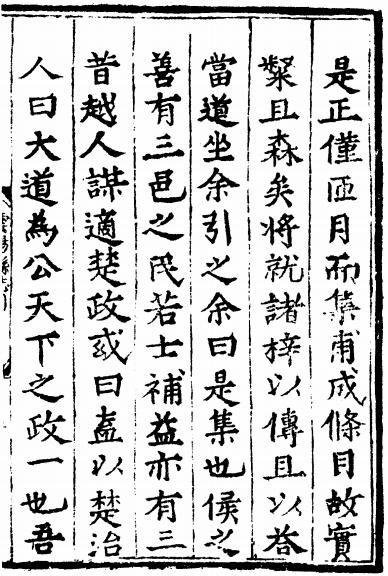 是正僅匝月而集甫成條目故實
粲且森矣將就諸梓以傳且以荅
當道坐余引之余曰是集也侯之
善有三邑之民若士補益亦有三
昔越人謀適楚政或曰盍以楚治
人曰大道為公天下之政一也吾